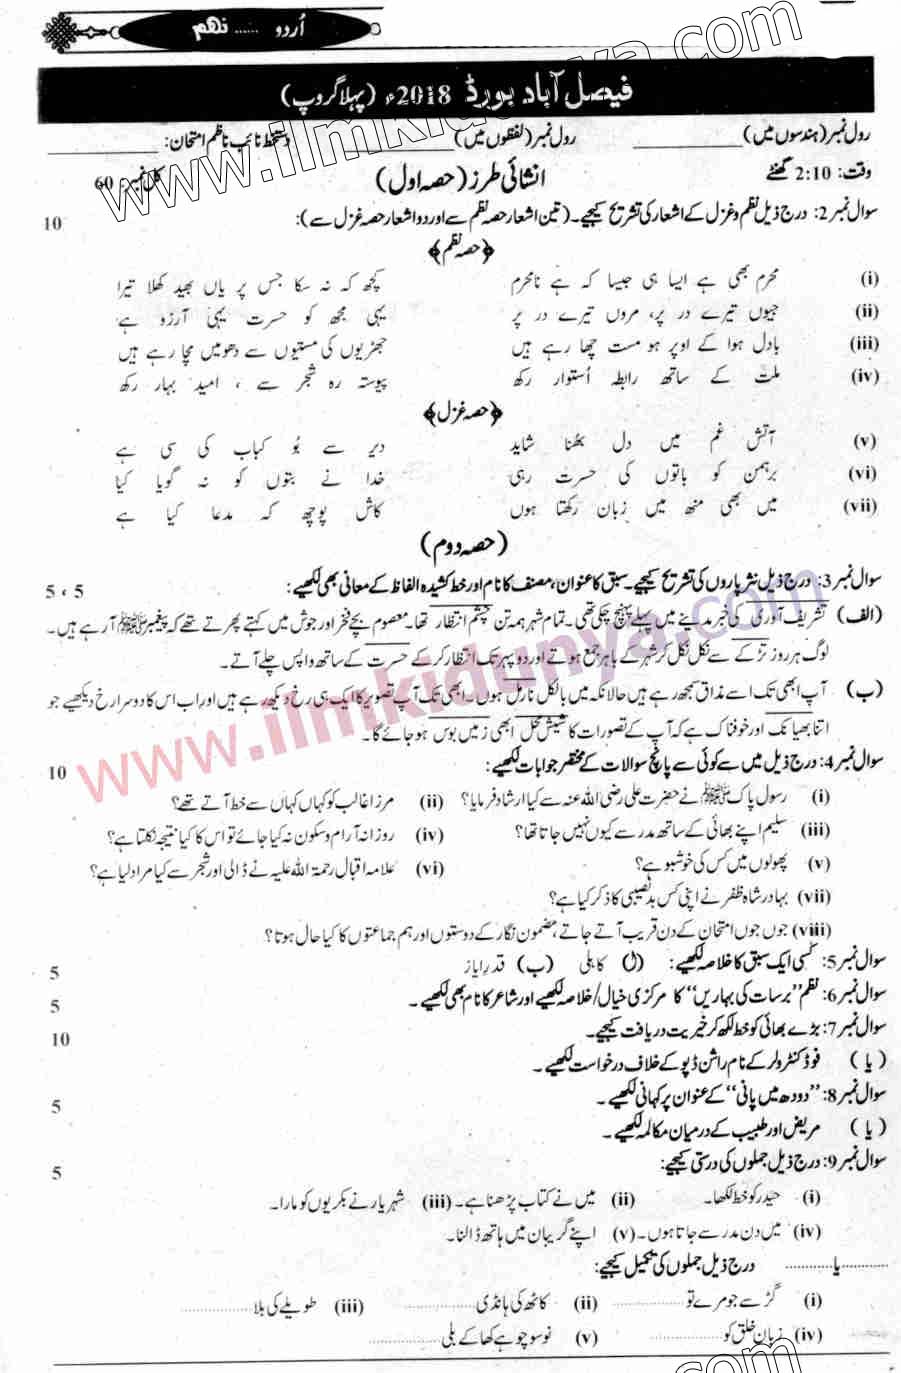 اُردو ...... نہم
فیصل آباد بورڈ 2018ء (پہلا گروپ)
رول نمبر (ہندسوں میں)__________ رول نمبر (لفظوں میں)__________ دستخط نائب ناظم امتحان: __________
وقت: 2:10 گھنٹے انشائی طرز (حصہ اول) کل نمبر: 60
سوال نمبر 2: درج ذیل نظم و غزل کے اشعار کی تشریح کیجیے۔ (تین اشعار حصہ نظم سے اور دو اشعار حصہ غزل سے): 10
﴿حصہ نظم﴾
(i) محرم بھی ہے ایسا ہی جیسا کہ ہے نامحرم کچھ کہہ نہ سکا جس پر یاں بھید کھلا تیرا
(ii) جیوں تیرے در پر، مروں تیرے در پر یہی مجھ کو حسرت یہی آرزو ہے
(iii) بادل ہوا کے اوپر ہو مست چھا رہے ہیں جھڑیوں کی مستیوں سے دھومیں مچا رہے ہیں
(iv) ملت کے ساتھ رابطہ اُستوار رکھ پیوستہ رہ شجر سے ، امید بہار رکھ
﴿حصہ غزل﴾
(v) آتش غم میں دل بھنا شاید دیر سے بُو کباب کی سی ہے
(vi) برہمن کو باتوں کی حسرت رہی خدا نے بتوں کو نہ گویا کیا
(vii) میں بھی منھ میں زبان رکھتا ہوں کاش پوچھو کہ مدعا کیا ہے
(حصہ دوم)
سوال نمبر 3: درج ذیل نثر پاروں کی تشریح کیجیے۔ سبق کا عنوان، مصنف کا نام اور خط کشیدہ الفاظ کے معانی بھی لکھیے: 5 ، 5
(الف) تشریف آوری کی خبر مدینے میں پہلے پہنچ چکی تھی۔ تمام شہر ہمہ تن چشم انتظار تھا۔ معصوم بچے فخر اور جوش میں کہتے پھرتے تھے کہ پیغمبرﷺ آ رہے ہیں۔
لوگ ہر روز تڑکے سے نکل نکل کر شہر کے باہر جمع ہوتے اور دوپہر تک انتظار کر کے حسرت کے ساتھ واپس چلے آتے۔
(ب) آپ ابھی تک اسے مذاق سمجھ رہے ہیں حالانکہ میں بالکل نارمل ہوں۔ ابھی تک آپ تصویر کا ایک ہی رخ دیکھ رہے ہیں اور اب اس کا دوسرا رخ دیکھیے جو
اتنا بھیانک اور خوفناک ہے کہ آپ کے تصورات کا شیش محل ابھی زمیں بوس ہو جائے گا۔
سوال نمبر 4: درج ذیل میں سے کوئی سے پانچ سوالات کے مختصر جوابات لکھیے: 10
(i) رسول پاکﷺ نے حضرت علی رضی اللہ عنہ سے کیا ارشاد فرمایا؟ (ii) مرزا غالب کو کہاں کہاں سے خط آتے تھے؟
(iii) سلیم اپنے بھائی کے ساتھ مدرسے کیوں نہیں جاتا تھا؟ (iv) روزانہ آرام و سکون نہ کیا جائے تو اس کا کیا نتیجہ نکلتا ہے؟
(v) پھولوں میں کس کی خوشبو ہے؟ (vi) علامہ اقبال رحمۃ اللہ علیہ نے ڈالی اور شجر سے کیا مراد لیا ہے؟
(vii) بہادر شاہ ظفر نے اپنی کس بدنصیبی کا ذکر کیا ہے؟
(viii) جوں جوں امتحان کے دن قریب آتے جاتے، مضمون نگار کے دوستوں اور ہم جماعتوں کا کیا حال ہوتا؟
سوال نمبر 5: کسی ایک سبق کا خلاصہ لکھیے: (ا) کاہلی (ب) قدرِ ایاز 5
سوال نمبر 6: نظم "برسات کی بہاریں" کا مرکزی خیال/خلاصہ لکھیے اور شاعر کا نام بھی لکھیے۔ 5
سوال نمبر 7: بڑے بھائی کو خط لکھ کر خیریت دریافت کیجیے۔ 10
(یا) فوڈ کنٹرولر کے نام راشن ڈپو کے خلاف درخواست لکھیے۔
سوال نمبر 8: "دودھ میں پانی" کے عنوان پر کہانی لکھیے۔ 5
(یا) مریض اور طبیب کے درمیان مکالمہ لکھیے۔
سوال نمبر 9: درج ذیل جملوں کی درستی کیجیے: 5
(i) حیدر کو خط لکھا۔ (ii) میں نے کتاب پڑھنا ہے۔ (iii) شہریار نے بکریوں کو مارا۔
(iv) میں دن مدرسے جاتا ہوں۔ (v) اپنے گریبان میں ہاتھ ڈالنا۔
............یا............ درج ذیل جملوں کی تکمیل کیجیے:
(i) گڑ سے جو مرے تو ............ (ii) کاٹھ کی ہانڈی ............ (iii) طویلے کی بلا ............
(iv) زبان خلق کو ............ (v) نو سو چوہے کھا کے بلی ............
www.ilmkidunya.com
www.ilmkidunya.com